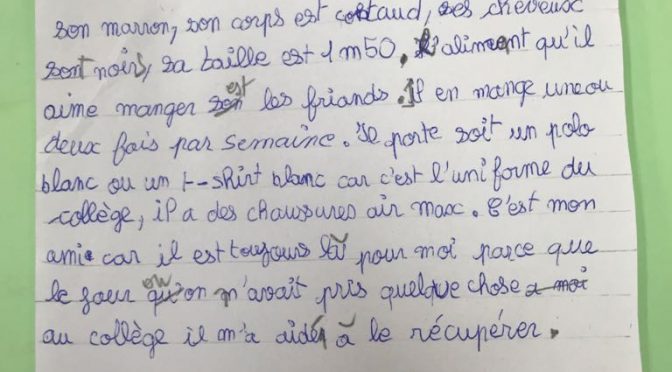 son marron, son corps est costaud, ses cheveux
sont noirs, sa taille est 1 m50. L'aliment qu'il
aime manger est les friands. Il en mange une ou
deux fois par semaine. Je porte soit un polo
blanc ou un t-shirt blanc car c'est l'uniforme du
collège, il a des chaussures air max. C'est mon
ami car il est toujours là pour moi parce que
le jour où on m'avait pris quelque chose a moi
au collège il m'a aidé à le récupérer.